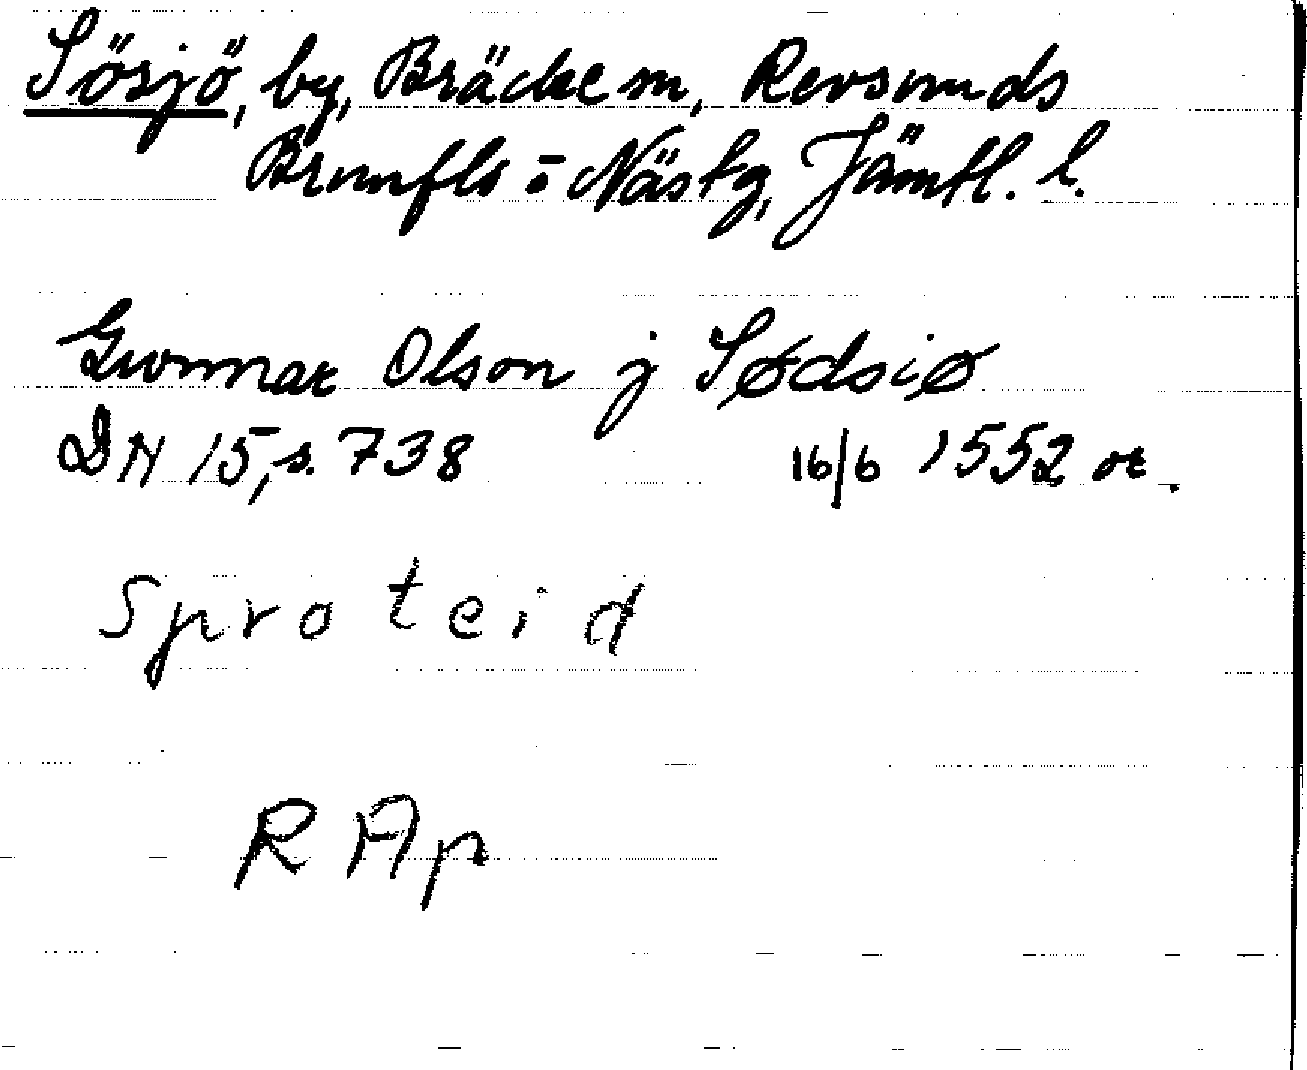 Sösjö, by, Bräcke sn, Revsunds
Brunflo o Näs tg, Jämtl. l.
Gunnar Olson j Sødsiø
DN 15, s. 738 16/6 1552 or.
Sproteid
RAp